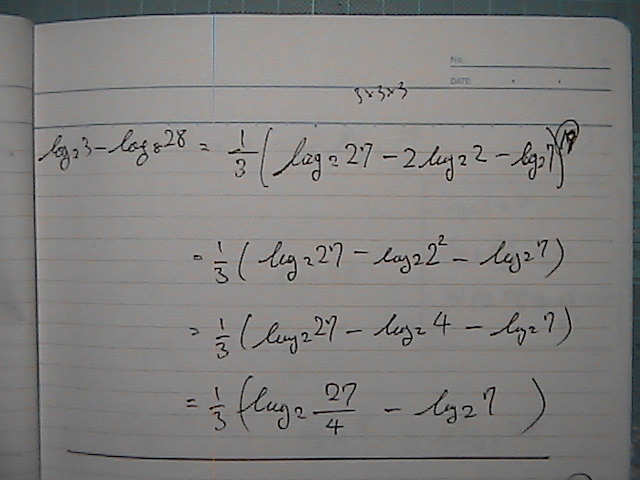 No.
DATE
3×3×3
log₂3 − log₈28 = 1/3 (log₂27 − 2log₂2 − log₂7)
= 1/3 (log₂27 − log₂2² − log₂7)
= 1/3 (log₂27 − log₂4 − log₂7)
= 1/3 (log₂ 27/4 − log₂7)